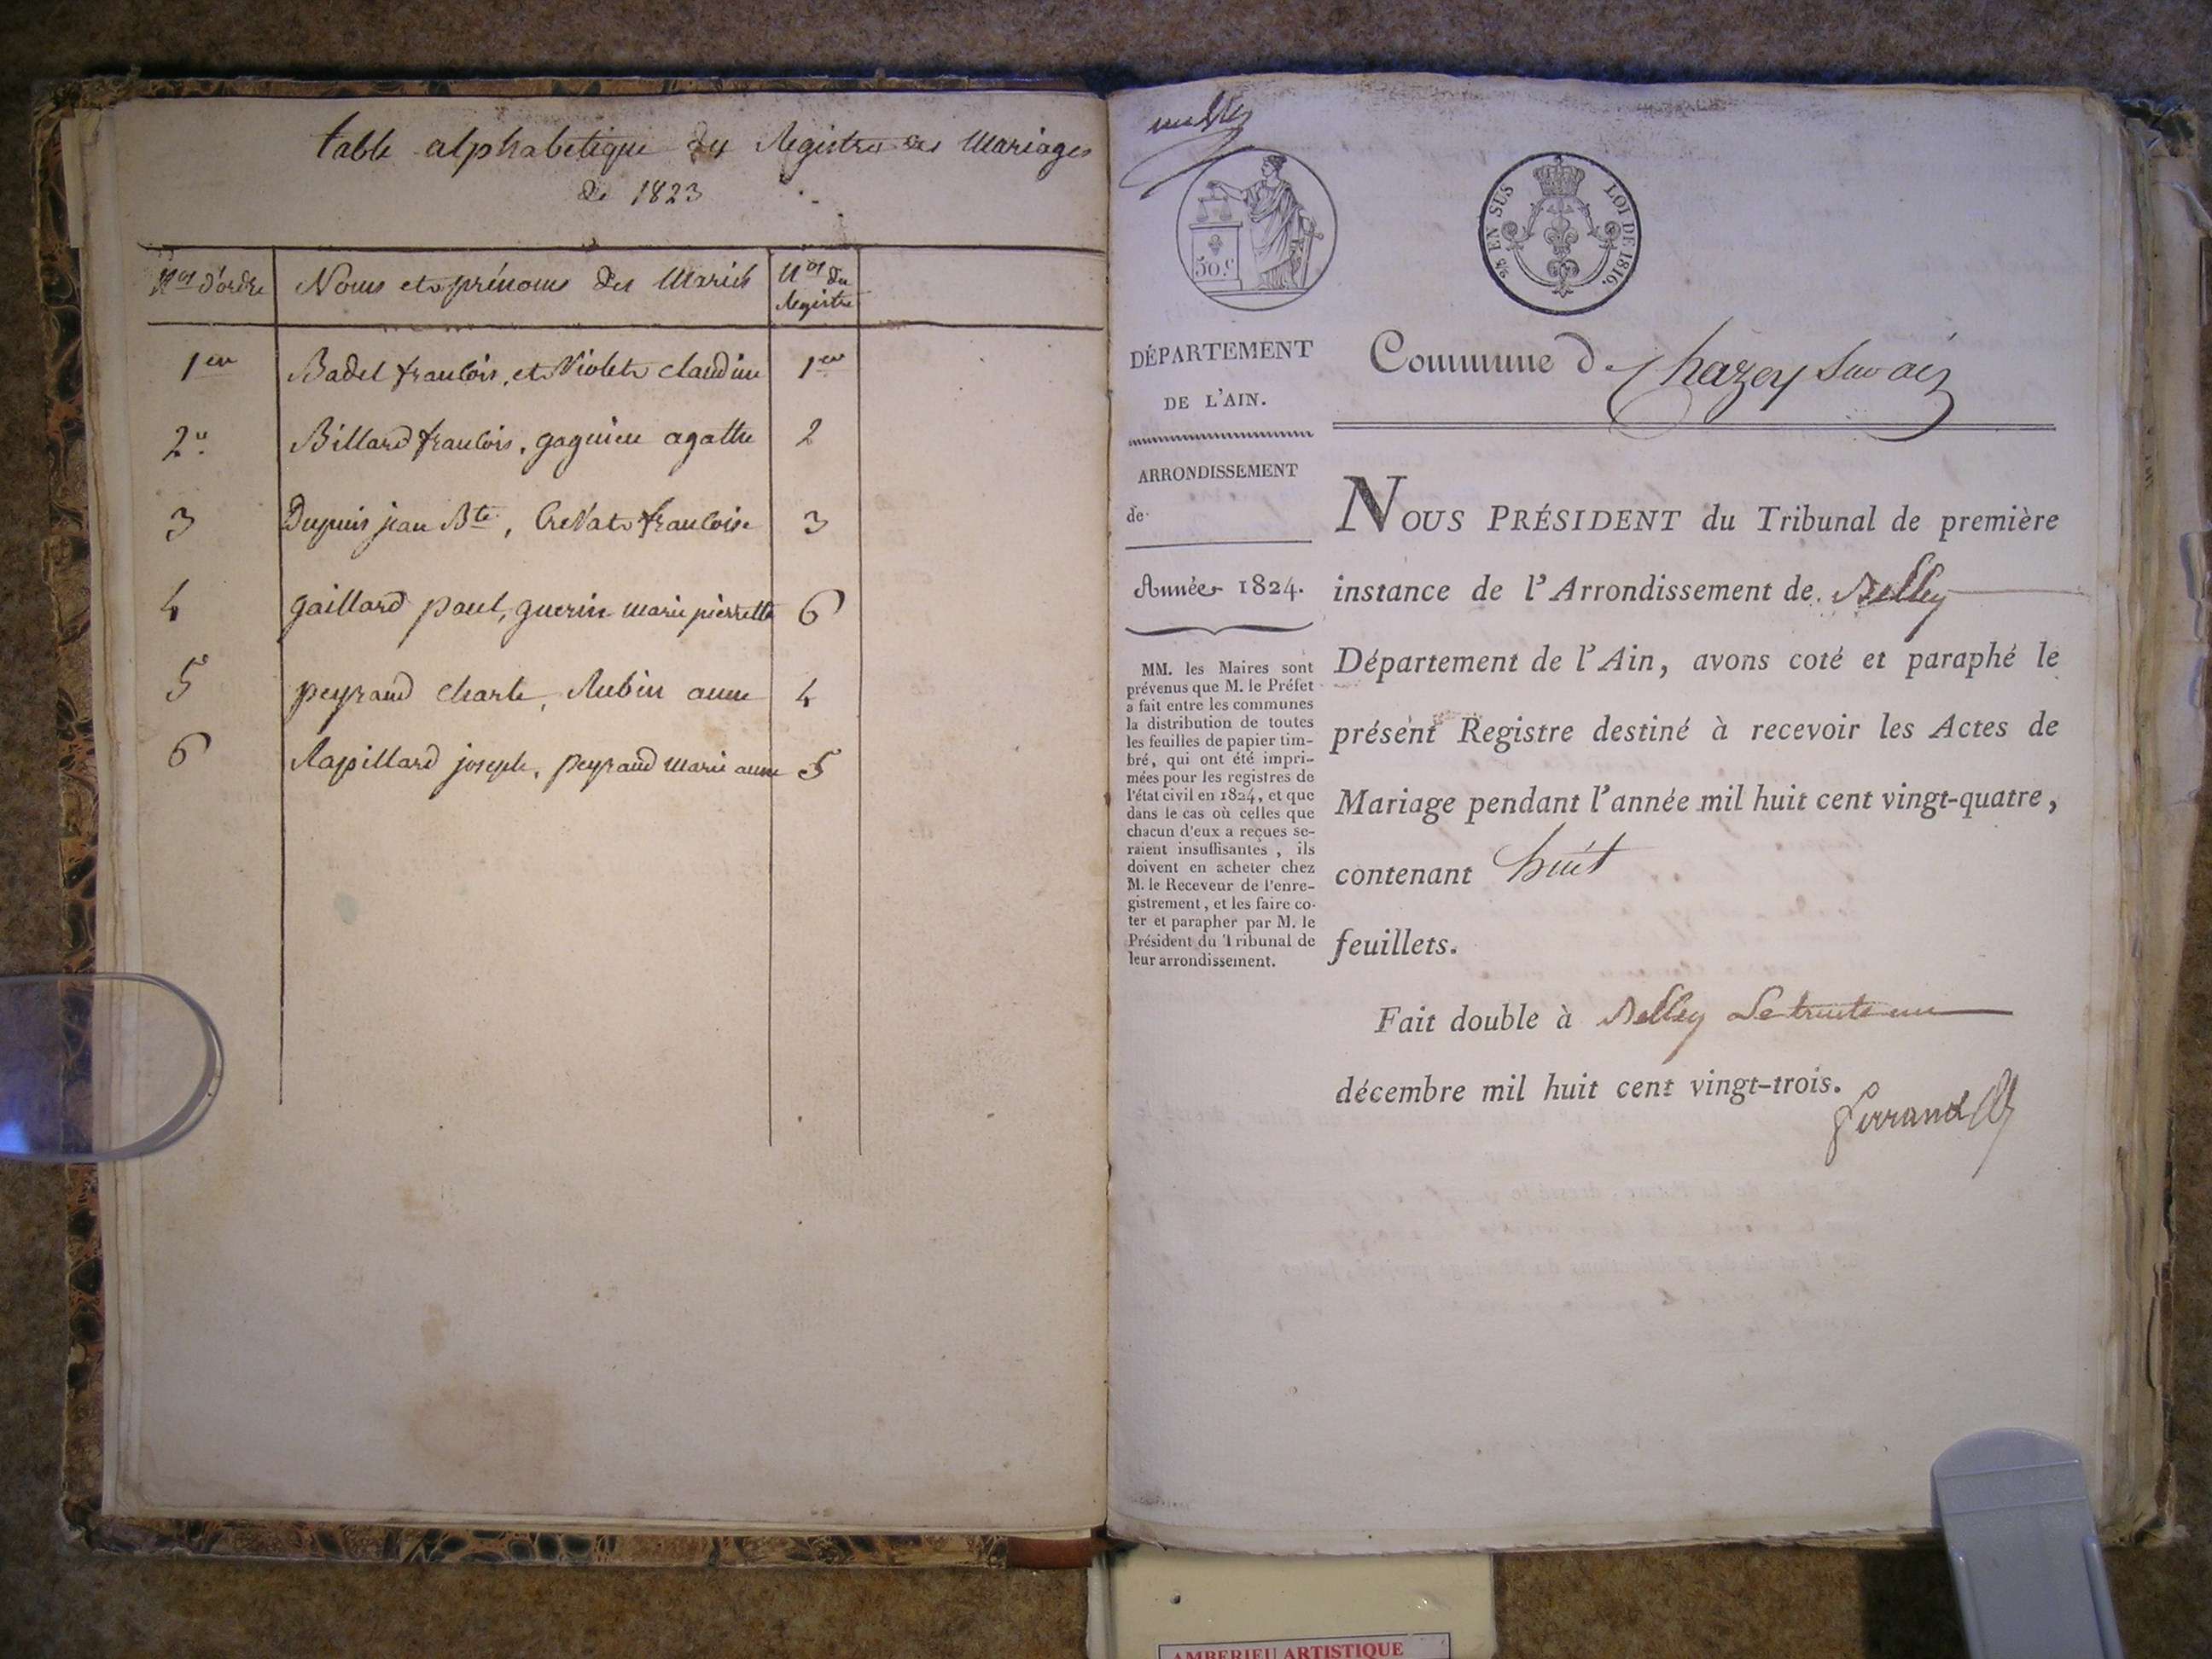 table alphabetique du Registre des Mariages
de 1823
Nos d'ordre
Noms et prénoms des Mariés
Nos du
Registre
1er Badel francois, et Violet claudine 1er
2e Billard francois, gagnieu agathe 2
3 Dupuis jean Bte, Crevat francoise 3
4 gaillard paul, guerin marie pierrette 6
5 peyraud charle, Rubin anne 4
6 Rapillard joseph, peyraud marie anne 5
50.c
2/5 EN SUS LOI DE 1816.
DÉPARTEMENT
DE L'AIN.
ARRONDISSEMENT
de
Année 1824.
MM. les Maires sont
prévenus que M. le Préfet
a fait entre les communes
la distribution de toutes
les feuilles de papier tim-
bré, qui ont été impri-
mées pour les registres de
l'état civil en 1824, et que
dans le cas où celles que
chacun d'eux a reçues se-
raient insuffisantes, ils
doivent en acheter chez
M. le Receveur de l'enre-
gistrement, et les faire co-
ter et parapher par M. le
Président du Tribunal de
leur arrondissement.
Commune de Chazey sur ain
NOUS PRÉSIDENT du Tribunal de première
instance de l'Arrondissement de Belley
Département de l'Ain, avons coté et paraphé le
présent Registre destiné à recevoir les Actes de
Mariage pendant l'année mil huit cent vingt-quatre,
contenant huit
feuillets.
Fait double à Belley Le trente un
décembre mil huit cent vingt-trois.
AMBERIEU ARTISTIQUE